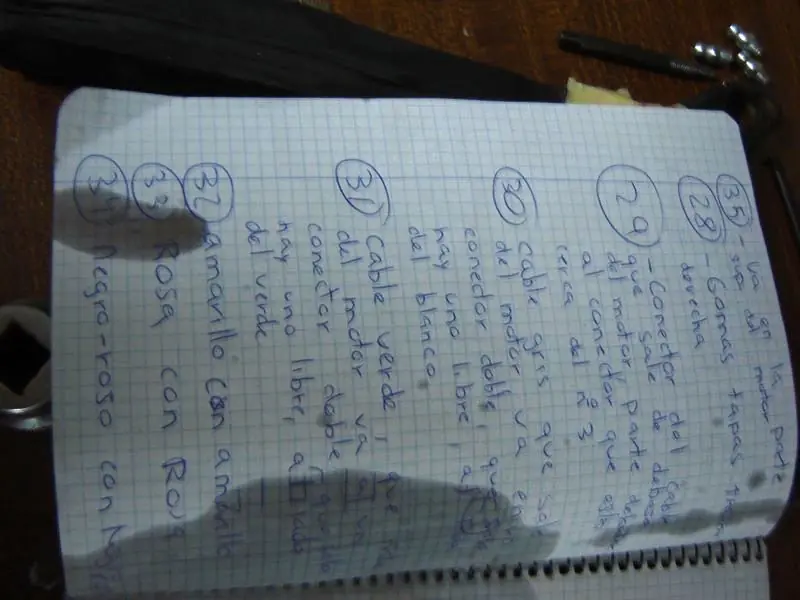 35 - va en la parte
sup del motor
28 - Gomas tapas
derecha
29 - Conector del cable
que sale de debajo
del motor parte
al conector que está
cerca del nº 3
30 cable gris que sale
del motor va en
conector doble, que
hay uno libre, al
del blanco
31 cable verde, que
del motor va al
conector doble que
hay uno libre, al lado
del verde
32 amarillo con amarillo
33 Rosa con Rosa
34 negro-roso con